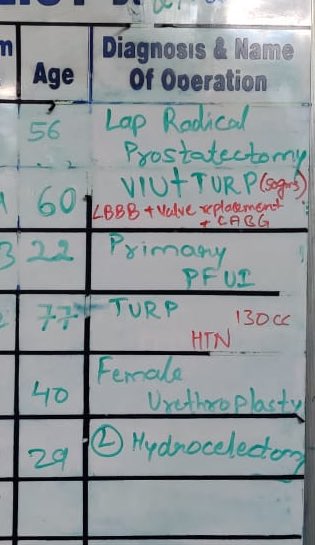 Age
Diagnosis & Name
Of Operation
56
Lap Radical
Prostatectomy
60
VIU + TURP (50gms)
LBBB + valve replacement
+ CABG
22
Primary
PFUI
77
TURP
130cc
HTN
40
Female
Urethroplasty
29
(L) Hydrocelectomy